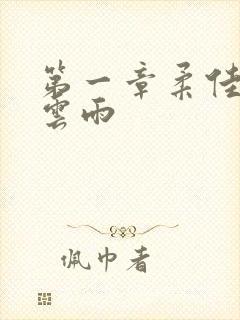 第一章柔佳
雲雨
佩巾者